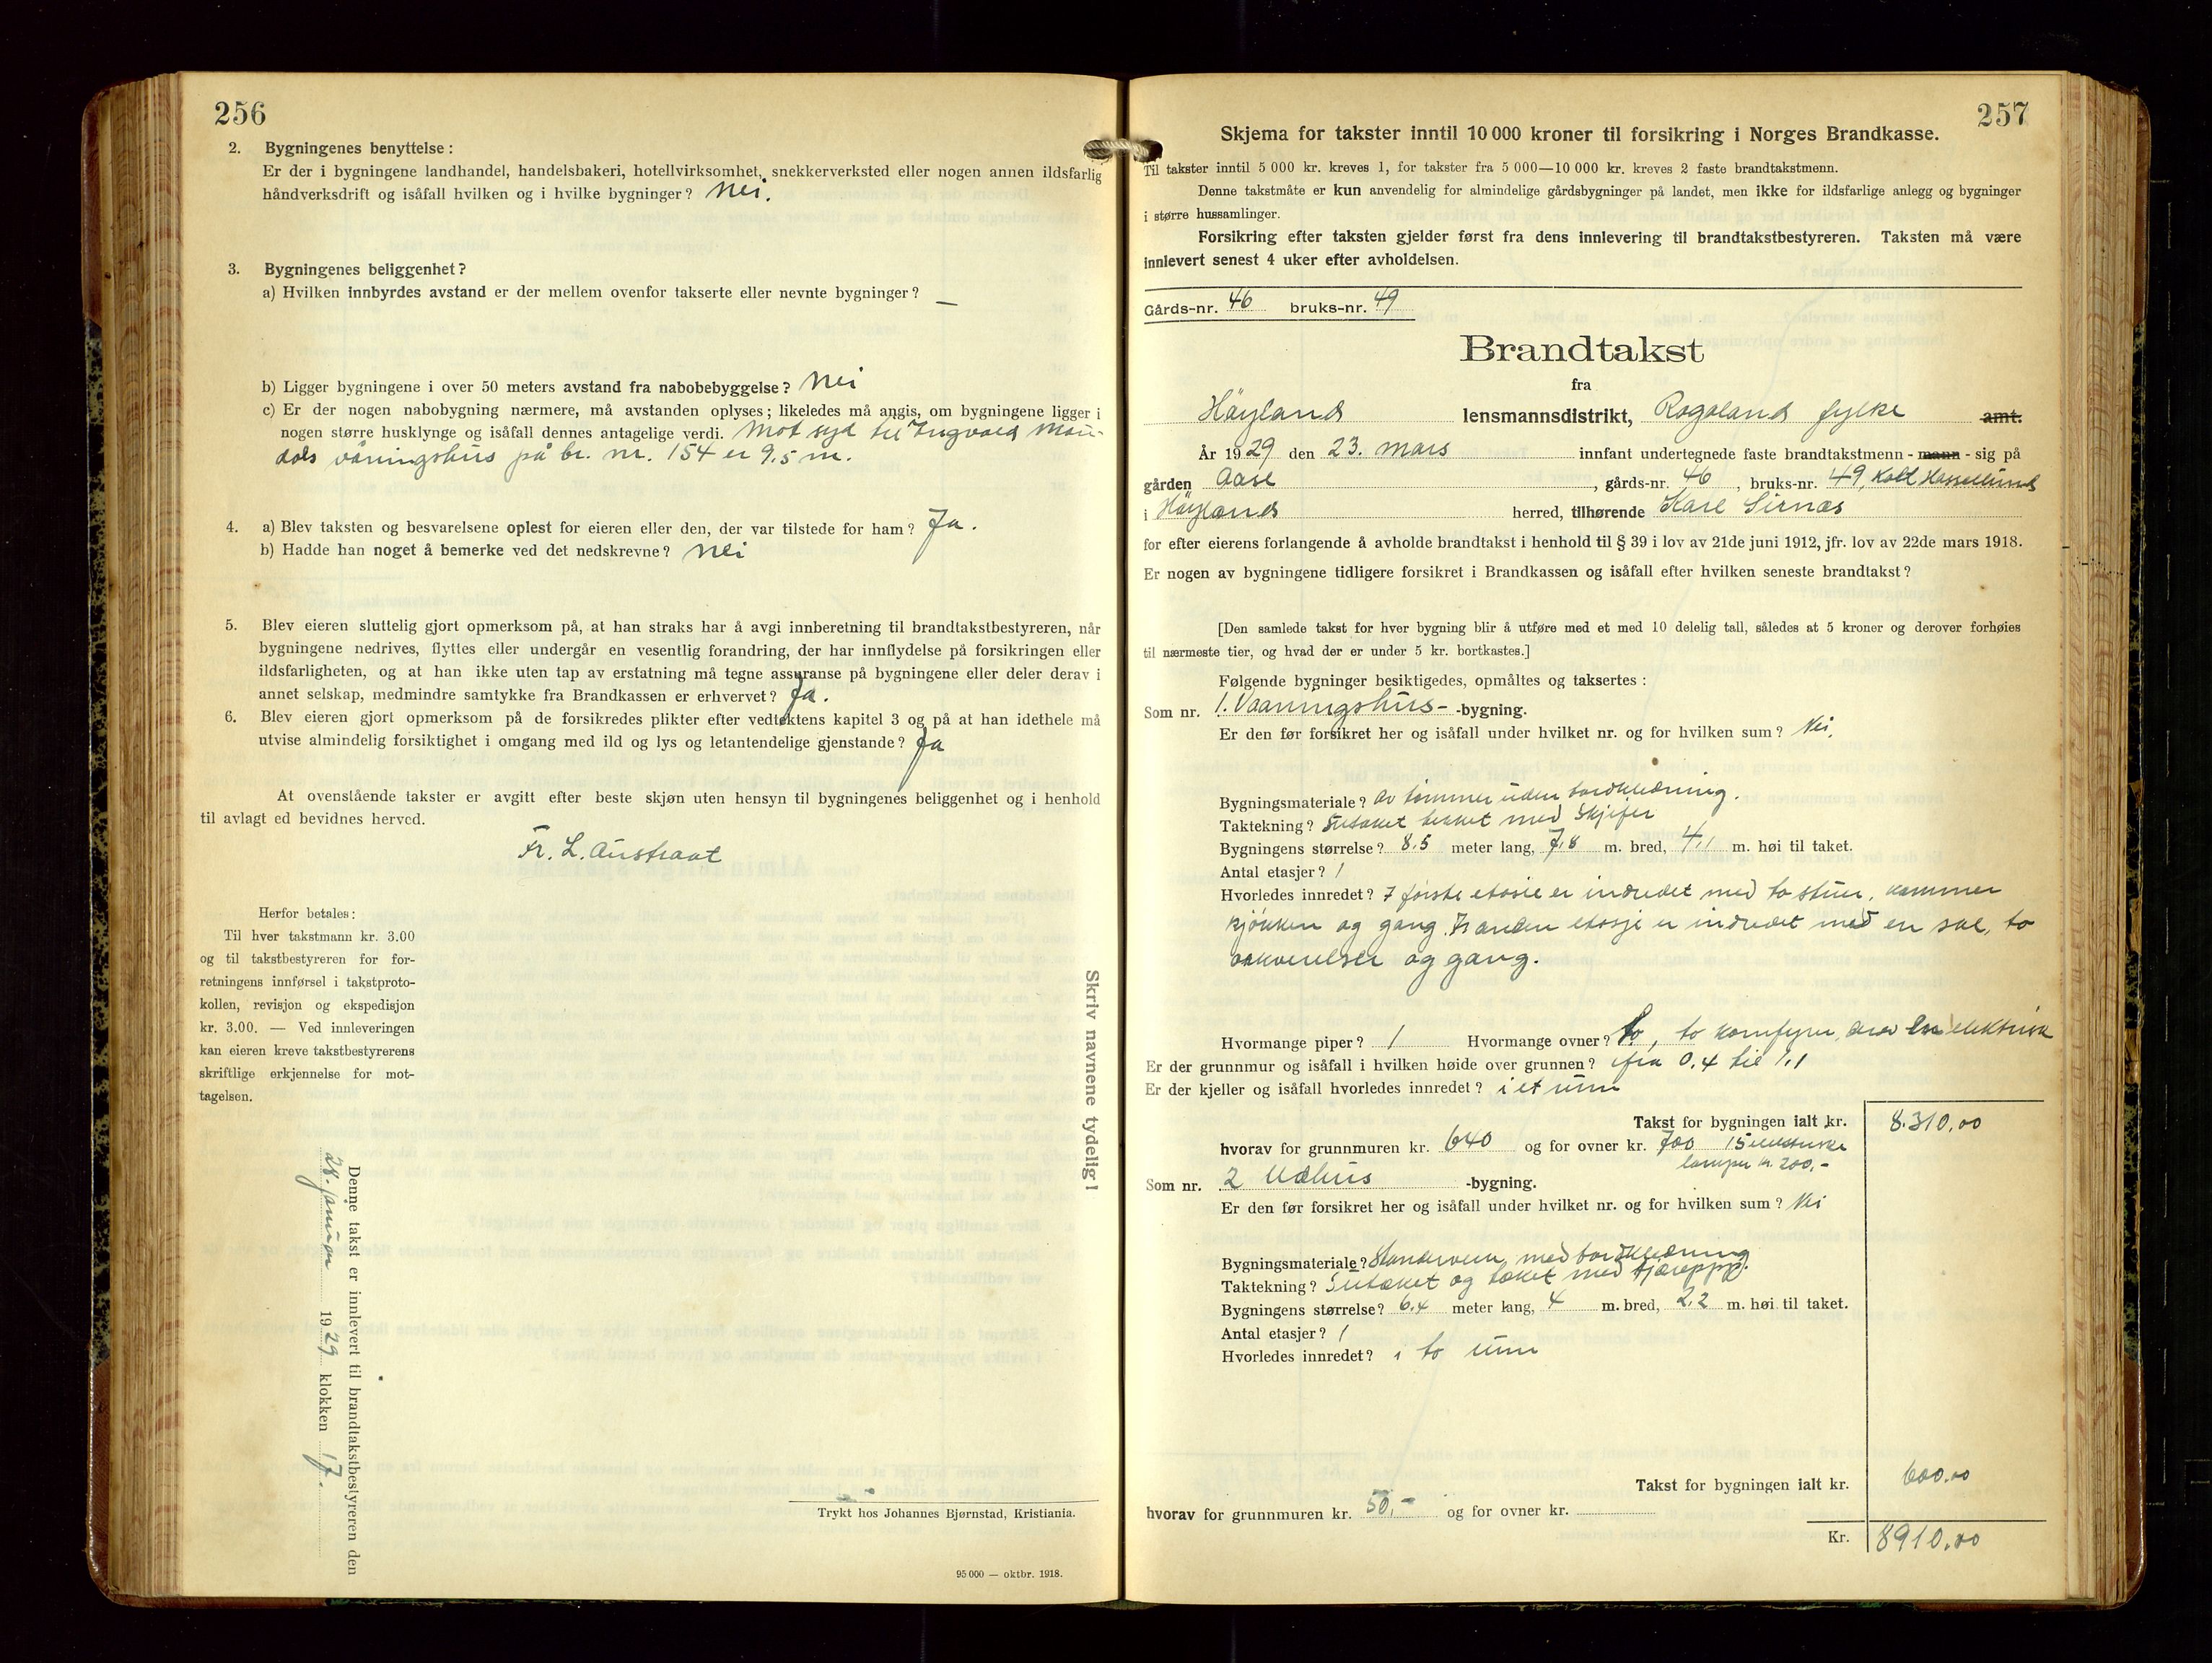 256
2. Bygningenes benyttelse:
Er der i bygningene landhandel, handelsbakeri, hotellvirksomhet, snekkerverksted eller nogen annen ildsfarlig
håndverksdrift og isåfall hvilken og i hvilke bygninger? Nei.
3. Bygningenes beliggenhet?
a) Hvilken innbyrdes avstand er der mellem ovenfor takserte eller nevnte bygninger? —
b) Ligger bygningene i over 50 meters avstand fra nabobebyggelse? Nei
c) Er der nogen nabobygning nærmere, må avstanden oplyses; likeledes må angis, om bygningene ligger i
nogen større husklynge og isåfall dennes antagelige verdi. Mot syd til Ingvald Mau-
dals våningshus på br. nr. 154 er 9,5 m.
4. a) Blev taksten og besvarelsene oplest for eieren eller den, der var tilstede for ham? Ja.
b) Hadde han noget å bemerke ved det nedskrevne? Nei
5. Blev eieren sluttelig gjort opmerksom på, at han straks har å avgi innberetning til brandtakstbestyreren, når
bygningene nedrives, flyttes eller undergår en vesentlig forandring, der har innflydelse på forsikringen eller
ildsfarligheten, og at han ikke uten tap av erstatning må tegne assuranse på bygningene eller deler derav i
annet selskap, medmindre samtykke fra Brandkassen er erhvervet? Ja.
6. Blev eieren gjort opmerksom på de forsikredes plikter efter vedtektens kapitel 3 og på at han idethele må
utvise almindelig forsiktighet i omgang med ild og lys og letantendelige gjenstande? Ja
At ovenstående takster er avgitt efter beste skjøn uten hensyn til bygningenes beliggenhet og i henhold
til avlagt ed bevidnes herved.
Fr. L. Austraat
Herfor betales:
Til hver takstmann kr. 3.00
og til takstbestyreren for for-
retningens innførsel i takstproto-
kollen, revisjon og ekspedisjon
kr. 3.00. — Ved innleveringen
kan eieren kreve takstbestyrerens
skriftlige erkjennelse for mot-
tagelsen.
Denne takst er innlevert til brandtakstbestyreren den
28. januar 1929 klokken 17.
Skriv navnene tydelig!
Trykt hos Johannes Bjørnstad, Kristiania.
95 000 — oktbr. 1918.
257
Skjema for takster inntil 10 000 kroner til forsikring i Norges Brandkasse.
Til takster inntil 5 000 kr. kreves 1, for takster fra 5 000—10 000 kr. kreves 2 faste brandtakstmenn.
Denne takstmåte er kun anvendelig for almindelige gårdsbygninger på landet, men ikke for ildsfarlige anlegg og bygninger
i større hussamlinger.
Forsikring efter taksten gjelder først fra dens innlevering til brandtakstbestyreren. Taksten må være
innlevert senest 4 uker efter avholdelsen.
Gårds-nr. 46 bruks-nr. 49
Brandtakst
fra
Höyland lensmannsdistrikt, Rogaland fylke amt.
År 1929 den 23. mars innfant undertegnede faste brandtakstmenn - mann - sig på
gården Aase, gårds-nr. 46, bruks-nr. 49, kalt
i Höyland herred, tilhørende Karl Sirnæs
for efter eierens forlangende å avholde brandtakst i henhold til § 39 i lov av 21de juni 1912, jfr. lov av 22de mars 1918.
Er nogen av bygningene tidligere forsikret i Brandkassen og isåfall efter hvilken seneste brandtakst?
[Den samlede takst for hver bygning blir å utføre med et med 10 delelig tall, således at 5 kroner og derover forhøies
til nærmeste tier, og hvad der er under 5 kr. bortkastes.]
Følgende bygninger besiktigedes, opmåltes og taksertes:
Som nr. 1. Vaaningshus- -bygning.
Er den før forsikret her og isåfall under hvilket nr. og for hvilken sum? Nei.
Bygningsmateriale? Av tømmer uden bordklædning.
Taktekning? Sutaket tekket med Skjifer
Bygningens størrelse? 8,5 meter lang, 7,8 m. bred, 4,1 m. høi til taket.
Antal etasjer? 1
Hvorledes innredet? I første etasje er indredet med to stuer, kammer
kjökken og gang. I anden etasje er indredet med en sal, to
værelser og gang.
Hvormange piper? 1 Hvormange ovner? To, to komfyrer, derav en elektrisk
Er der grunnmur og isåfall i hvilken høide over grunnen? fra 0,4 til 1,1
Er der kjeller og isåfall hvorledes innredet? i et rum
Takst for bygningen ialt kr. 8.310,00
hvorav for grunnmuren kr. 640 og for ovner kr. 700 15 elektriske
lamper kr. 200,-
Som nr. 2 Udhus -bygning.
Er den før forsikret her og isåfall under hvilket nr. og for hvilken sum? Nei
Bygningsmateriale? Standerverk med bordklædning
Taktekning? Sutaket og tækt med tjærepapp.
Bygningens størrelse? 6,4 meter lang, 4 m. bred, 2,2 m. høi til taket.
Antal etasjer? 1
Hvorledes innredet? i to rum
Takst for bygningen ialt kr. 600,00
hvorav for grunnmuren kr. 50,- og for ovner kr.
Kr. 8910,00